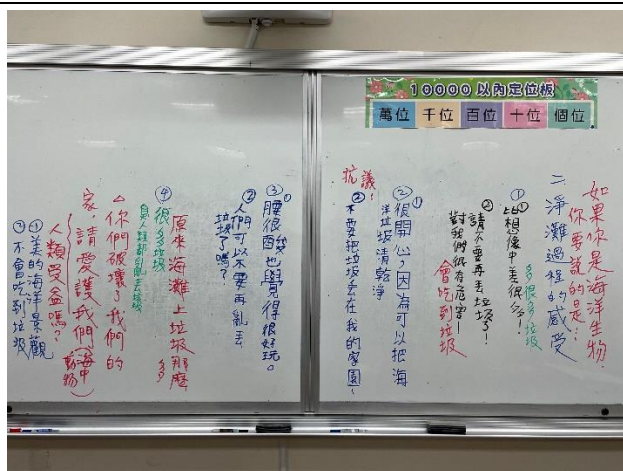 10000 以內定位板
萬位 千位 百位 十位 個位
如果你是海洋生物,
你要說的是:
二、淨灘過程的感受
① 比想像中美很多!
多很多垃圾
② 請不要再丟垃圾了!
對我們很有危害!
會吃到垃圾
② 很開心,因為可以把海
洋垃圾清乾淨
抗議!
② 不要把垃圾丟在我的家園!
③ 腰很酸也覺得很好玩。
② 人們可以不要再亂丟
垃圾了嗎?
④ 原來海灘上垃圾那麼多
很多垃圾
你們破壞了我們的
家,請愛護我們(海中動物)
人類受益嗎?
① 美的海洋景觀
② 不會吃到垃圾